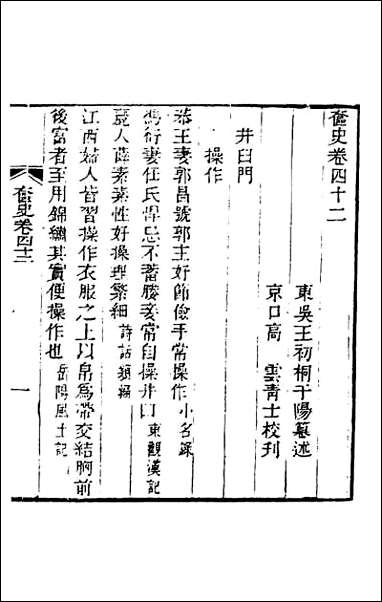 奩史卷四十二
東吳王初桐于陽纂述
京口高　雲青士校刊
井臼門
操作
恭王妻郭昌號郭主好節儉手常操作小名錄
馮衍妻任氏悍忌不蓄媵妾常自操井臼東觀漢記
麗人薛素素性好操理繁細詩話類編
江西婦人皆習操作衣服之上以帛為帶交結胸前
後富者至用錦繡其實便操作也岳陽風土記
奩史卷四十二
一